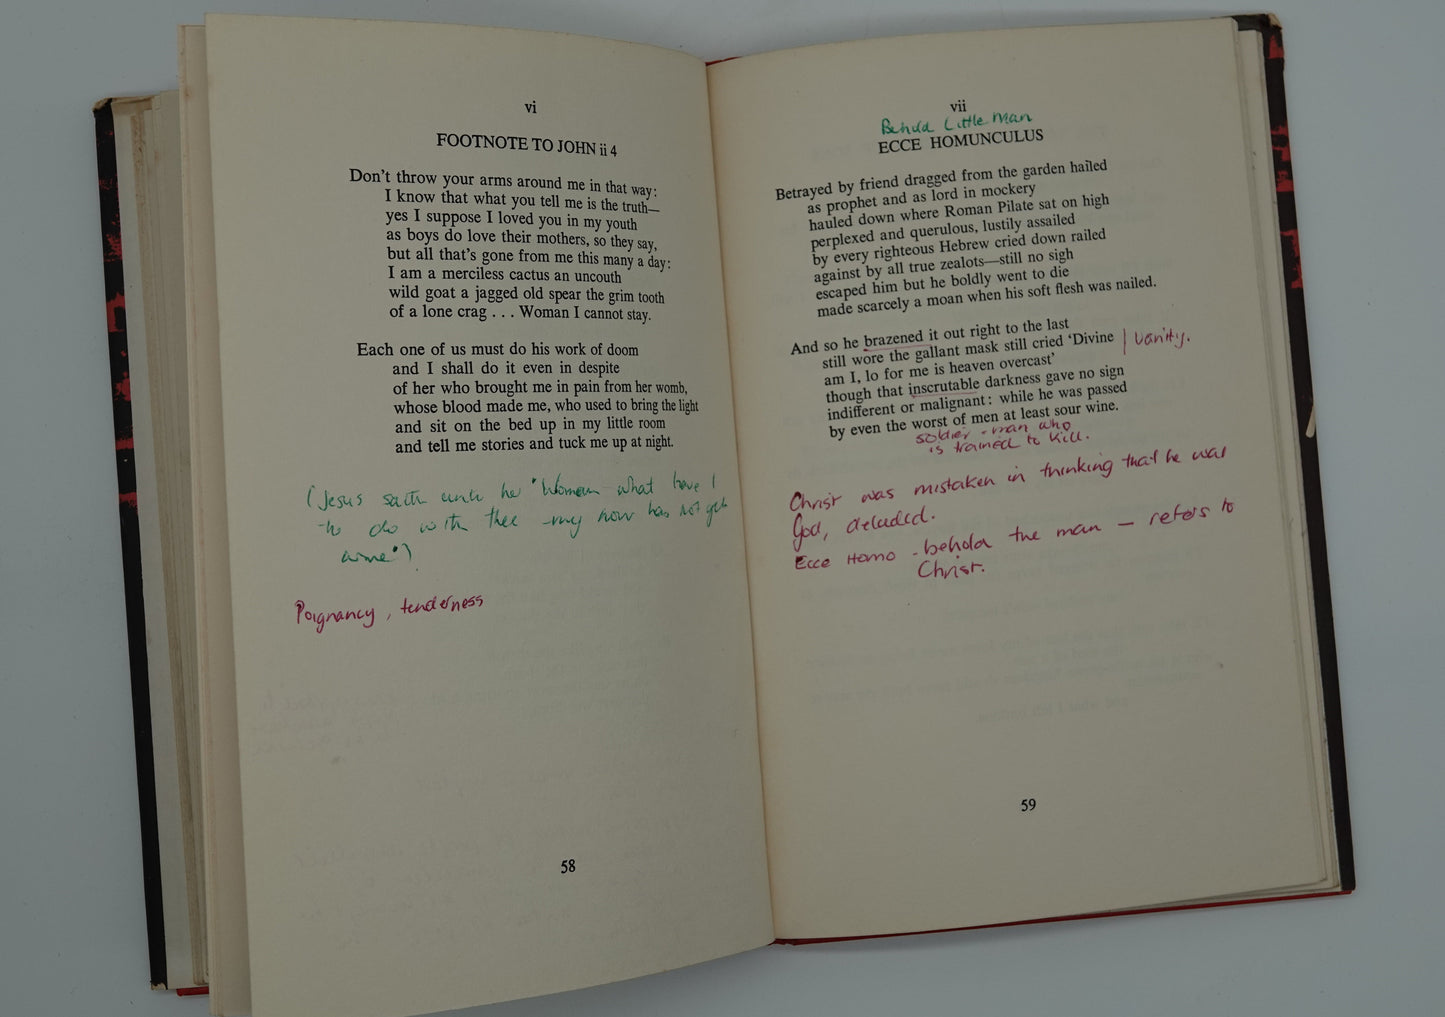 vi
FOOTNOTE TO JOHN ii 4
Don't throw your arms around me in that way:
I know that what you tell me is the truth—
yes I suppose I loved you in my youth
as boys do love their mothers, so they say,
but all that's gone from me this many a day:
I am a merciless cactus an uncouth
wild goat a jagged old spear the grim tooth
of a lone crag . . . Woman I cannot stay.
Each one of us must do his work of doom
and I shall do it even in despite
of her who brought me in pain from her womb,
whose blood made me, who used to bring the light
and sit on the bed up in my little room
and tell me stories and tuck me up at night.
(Jesus saith unto her 'Woman what have I
to do with thee - my hour has not yet
come')
Poignancy, tenderness
58
vii
Behold Little Man
ECCE HOMUNCULUS
Betrayed by friend dragged from the garden hailed
as prophet and as lord in mockery
hauled down where Roman Pilate sat on high
perplexed and querulous, lustily assailed
by every righteous Hebrew cried down railed
against by all true zealots—still no sigh
escaped him but he boldly went to die
made scarcely a moan when his soft flesh was nailed.
And so he brazened it out right to the last
still wore the gallant mask still cried 'Divine | vanity.
am I, lo for me is heaven overcast'
though that inscrutable darkness gave no sign
indifferent or malignant: while he was passed
by even the worst of men at least sour wine.
soldier - man who
is trained to kill.
Christ was mistaken in thinking that he was
God, deluded.
Ecce Homo - behold the man — refers to
Christ.
59